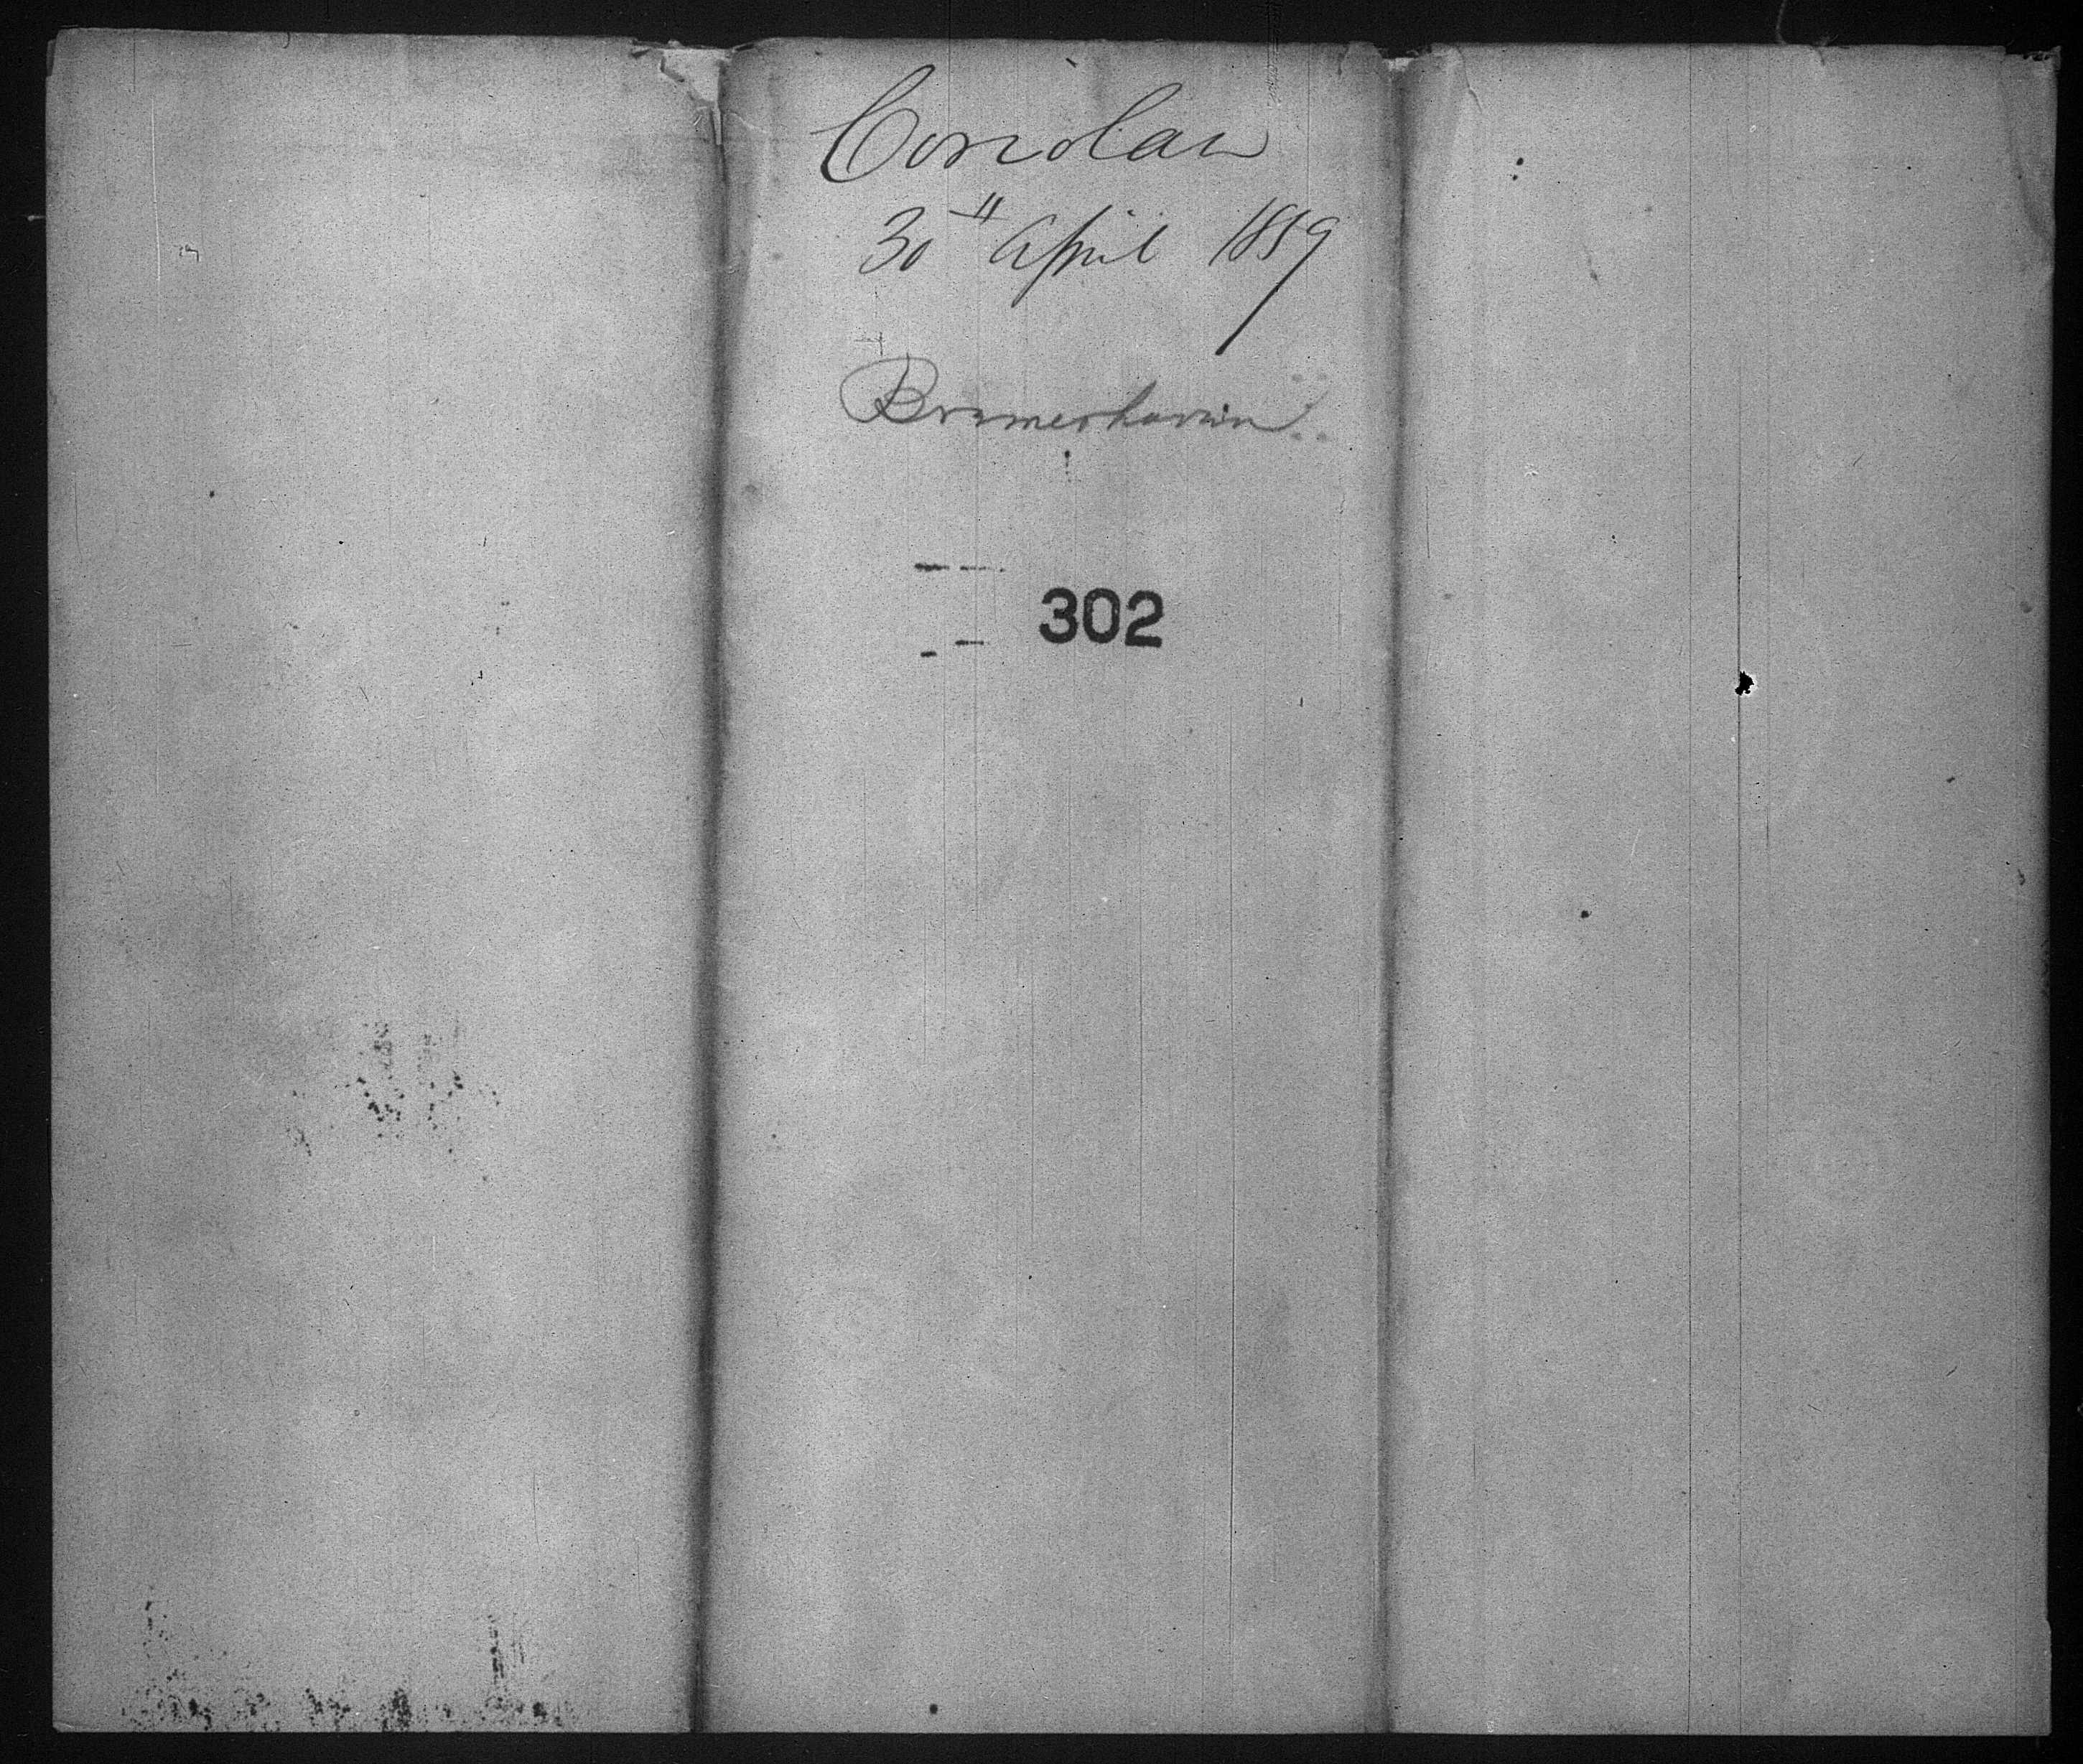 Coriolan
30" April 1859
Bremerhaven
302